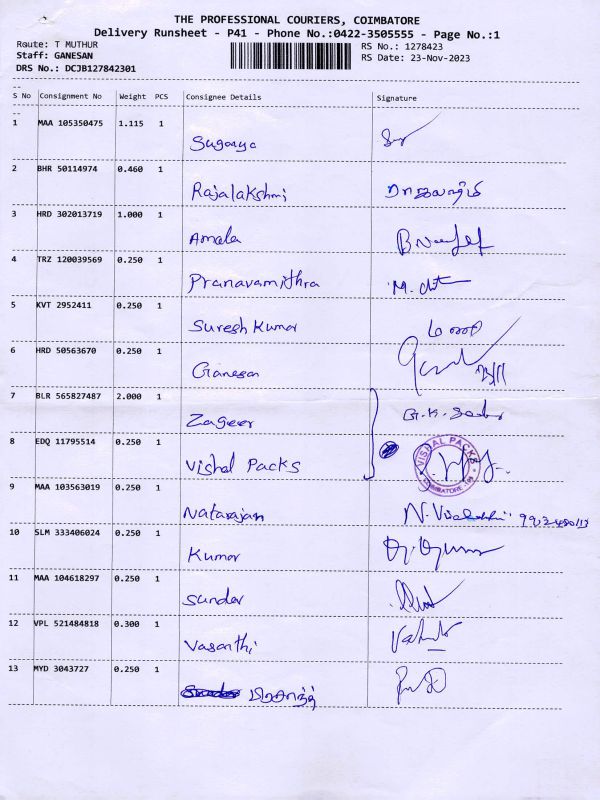 THE PROFESSIONAL COURIERS, COIMBATORE
Delivery Runsheet - P41 - Phone No.:0422-3505555 - Page No.:1
Route: T MUTHUR RS No.: 1278423
Staff: GANESAN RS Date: 23-Nov-2023
DRS No.: DCJB127842301
S No Consignment No Weight PCS Consignee Details Signature
1 MAA 105350475 1.115 1
Suganya
2 BHR 50114974 0.460 1
Rajalakshmi
3 HRD 302013719 1.000 1
Amala
4 TRZ 120039569 0.250 1
Pranavamithra
5 KVT 2952411 0.250 1
Suresh Kumar
6 HRD 50563670 0.250 1
Ganesan
7 BLR 565827487 2.000 1
Zageer
8 EDQ 11795514 0.250 1
Vishal Packs VISHAL PACKS COIMBATORE
9 MAA 103563019 0.250 1
Natarajan
10 SLM 333406024 0.250 1
Kumar
11 MAA 104618297 0.250 1
Sundar
12 VPL 521484818 0.300 1
Vasanthi
13 MYD 3043727 0.250 1